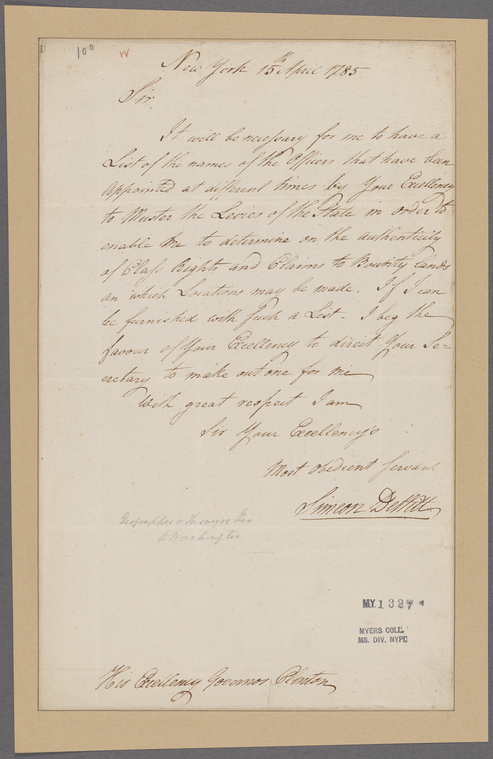 100
W
New York 15th April 1785
Sir
It will be necessary for me to have a
List of the names of the Officers that have been
Appointed at different times by Your Excellency
to Muster the Levies of the State in order to
enable me to determine on the authenticity
of Class Rights and Claims to Bounty Lands
on which Locations may be made. If I can
be furnished with such a List - I beg the
favour of Your Excellency to direct Your Se-
cretary to make out one for me
With great respect I am
Sir Your Excellency's
Most Obedient Servant
Simeon DeWitt
Geographer & Surveyor Gen
to Washington
MY 1327
MYERS COLL.
MS. DIV. NYPL
His Excellency Governor Clinton